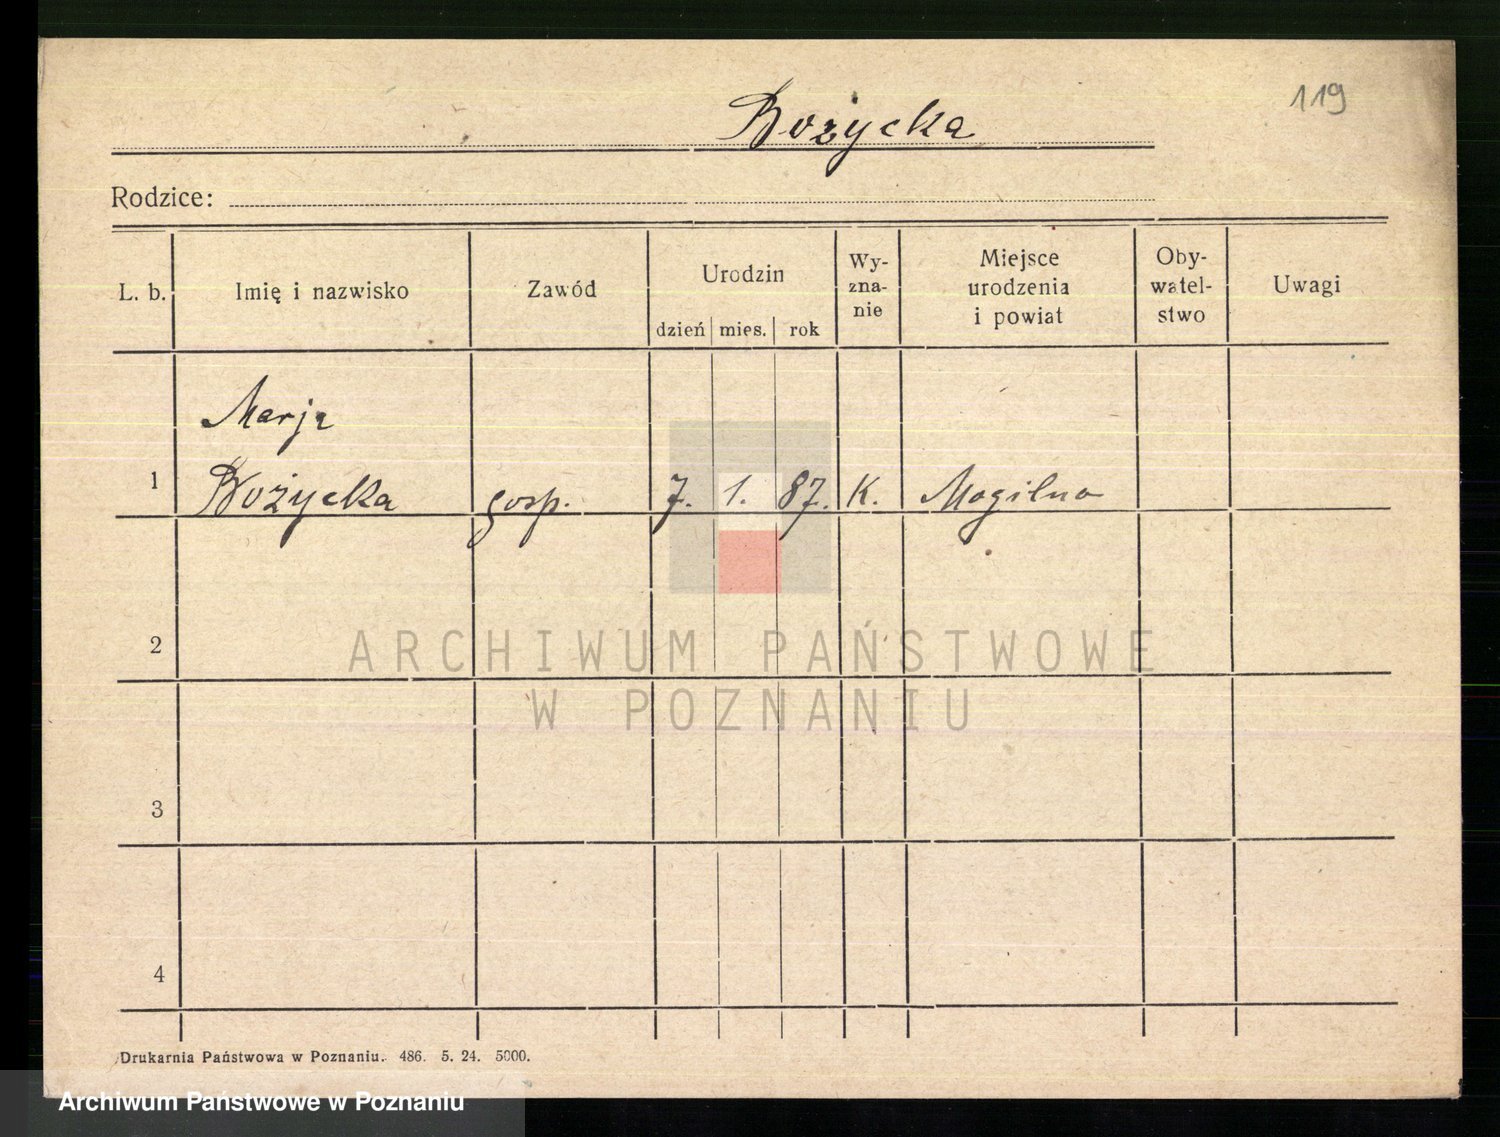 119
Bożycka
Rodzice:
L. b.
Imię i nazwisko
Zawód
Urodzin
dzień
mies.
rok
Wy-
zna-
nie
Miejsce
urodzenia
i powiat
Oby-
watel-
stwo
Uwagi
Marja
1 Bożycka gosp. 7. 1. 87. K. Mogilno
2
ARCHIWUM PAŃSTWOWE
W POZNANIU
3
4
Drukarnia Państwowa w Poznaniu. 486. 5. 24. 5000.
Archiwum Państwowe w Poznaniu